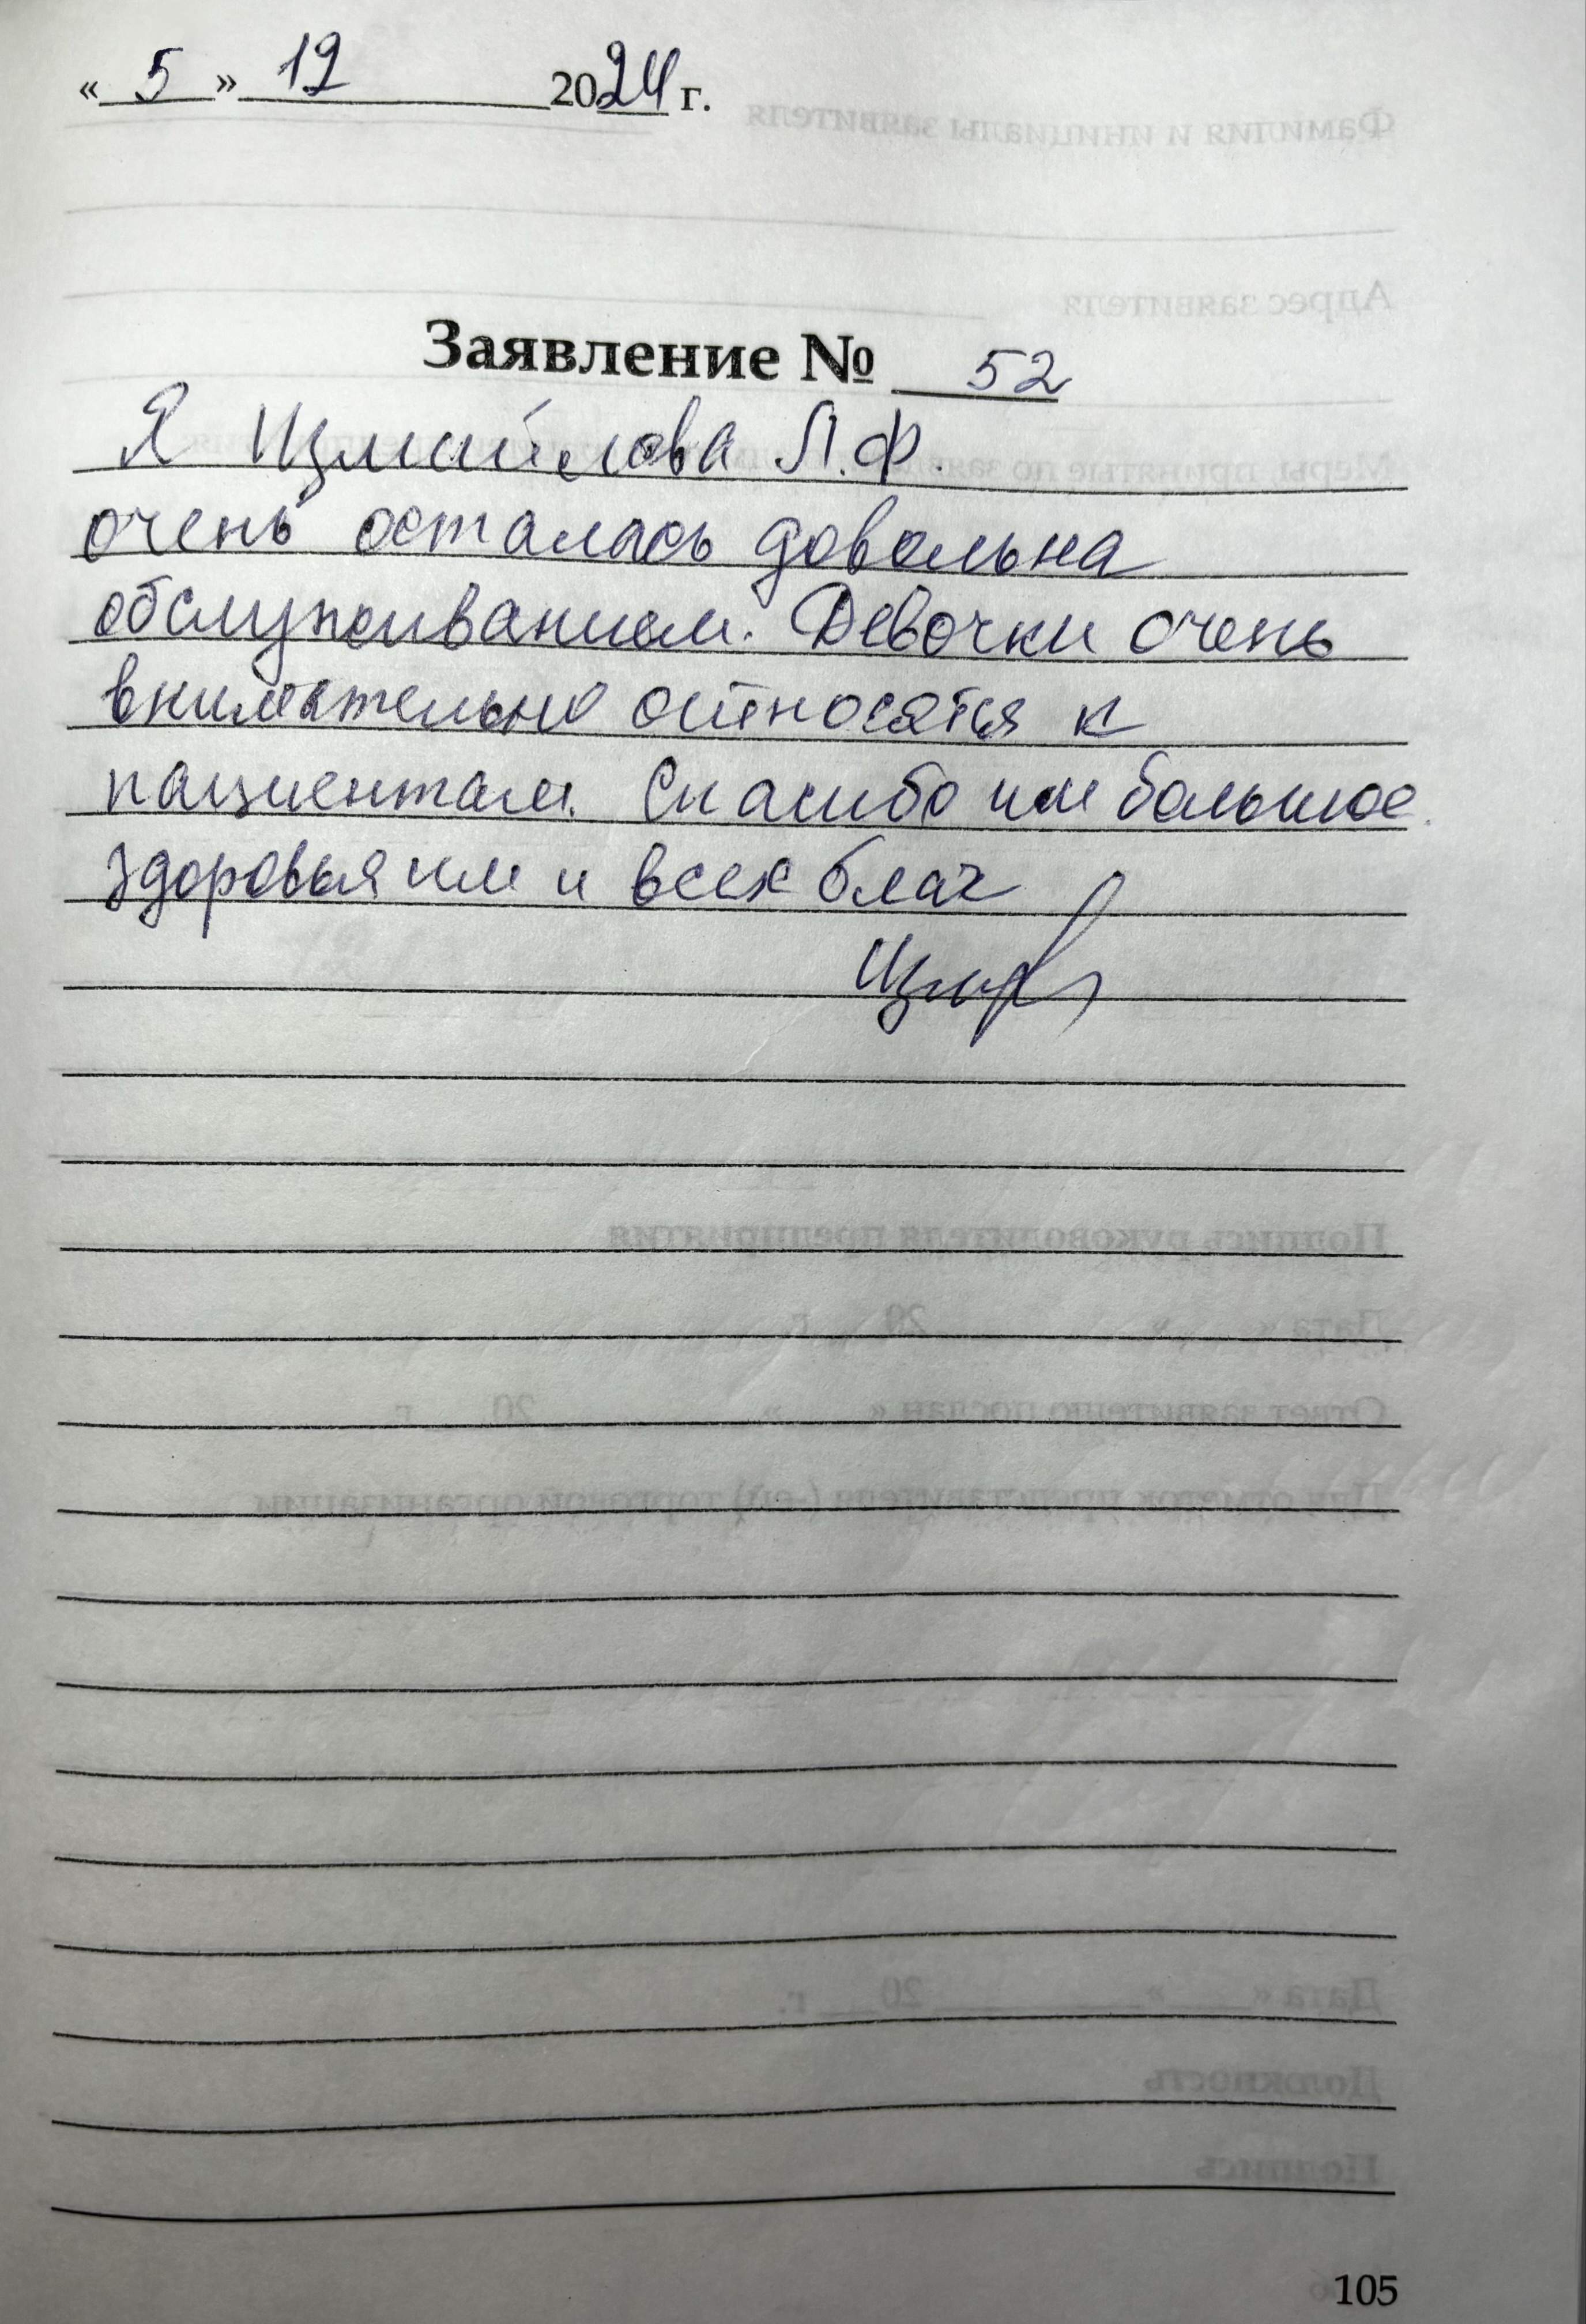 « 5 » 12 2024 г.
Заявление № 52
Я Измайлова Л.Ф.
очень осталась довольна
обслуживанием. Девочки очень
внимательно относятся к
пациентам. Спасибо им большое.
здоровья им и всех благ
105